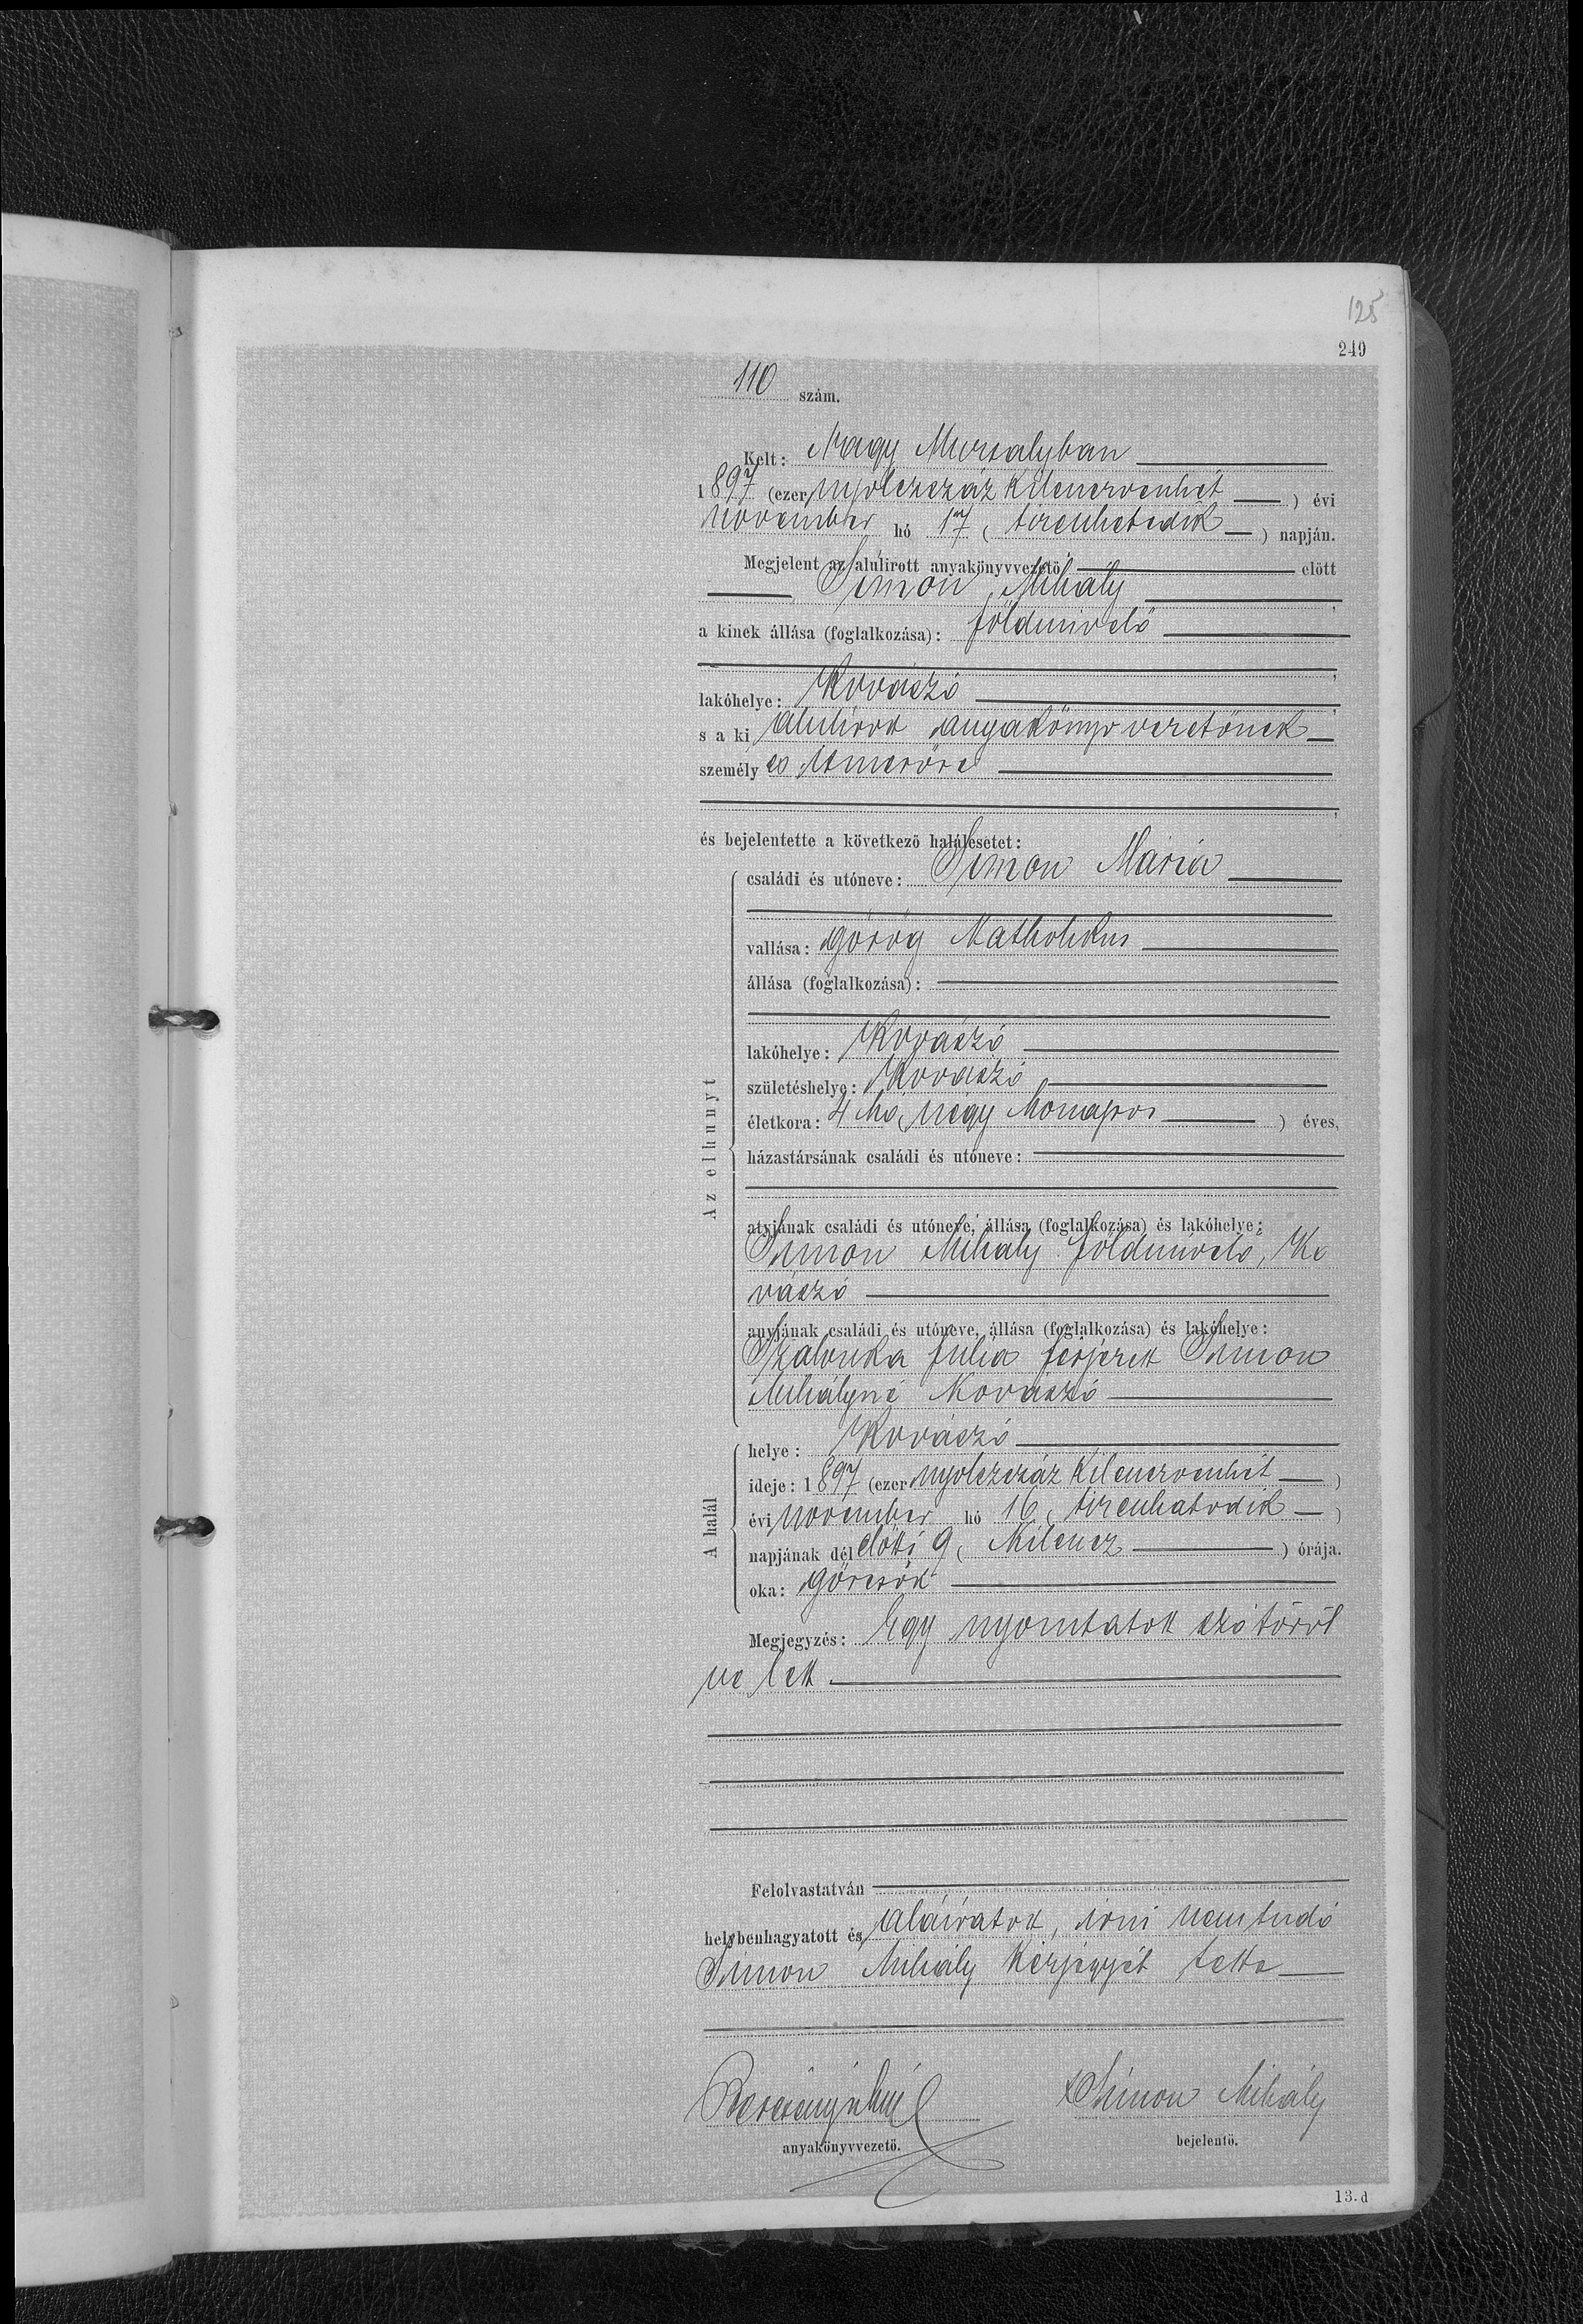 125
249
110 szám.
Kelt: Nagy Muzsalyban
1897 (ezer nyolczszáz kilenczvenhét) évi
november hó 17 (tizenhetedik) napján.
Megjelent az alulirott anyakönyvvezető előtt
Simon Mihály
a kinek állása (foglalkozása): földmivelő
lakóhelye: Kovászó
s a ki alulirott anyakönyvvezetőnek
személyes ismerőse
és bejelentette a következő halálesetet:
családi és utóneve: Simon Mária
vallása: görög katholikus
állása (foglalkozása):
lakóhelye: Kovászó
születéshelye: Kovászó
életkora: 4 hó (négy hónapos) éves,
házastársának családi és utóneve:
Az elhunyt
atyjának családi és utóneve, állása (foglalkozása) és lakóhelye:
Simon Mihály földmivelő, Ko
vászó
anyjának családi és utóneve, állása (foglalkozása) és lakóhelye:
Julia férjezett Simon
Mihályné Kovászó
helye: Kovászó
ideje: 1897 (ezer nyolczszáz kilenczvenhét)
évi november hó 16 (tizenhatodik)
A halál
napjának dél előtti 9 (kilencz) órája.
oka: görcsök
Megjegyzés: Egy nyomtatott szó töröl
ve lett
Felolvastatván
helybenhagyatott és aláiratott, irni nem tudó
Simon Mihály kézjegyét tette
x Simon Mihály
anyakönyvvezető. bejelentő.
13. d